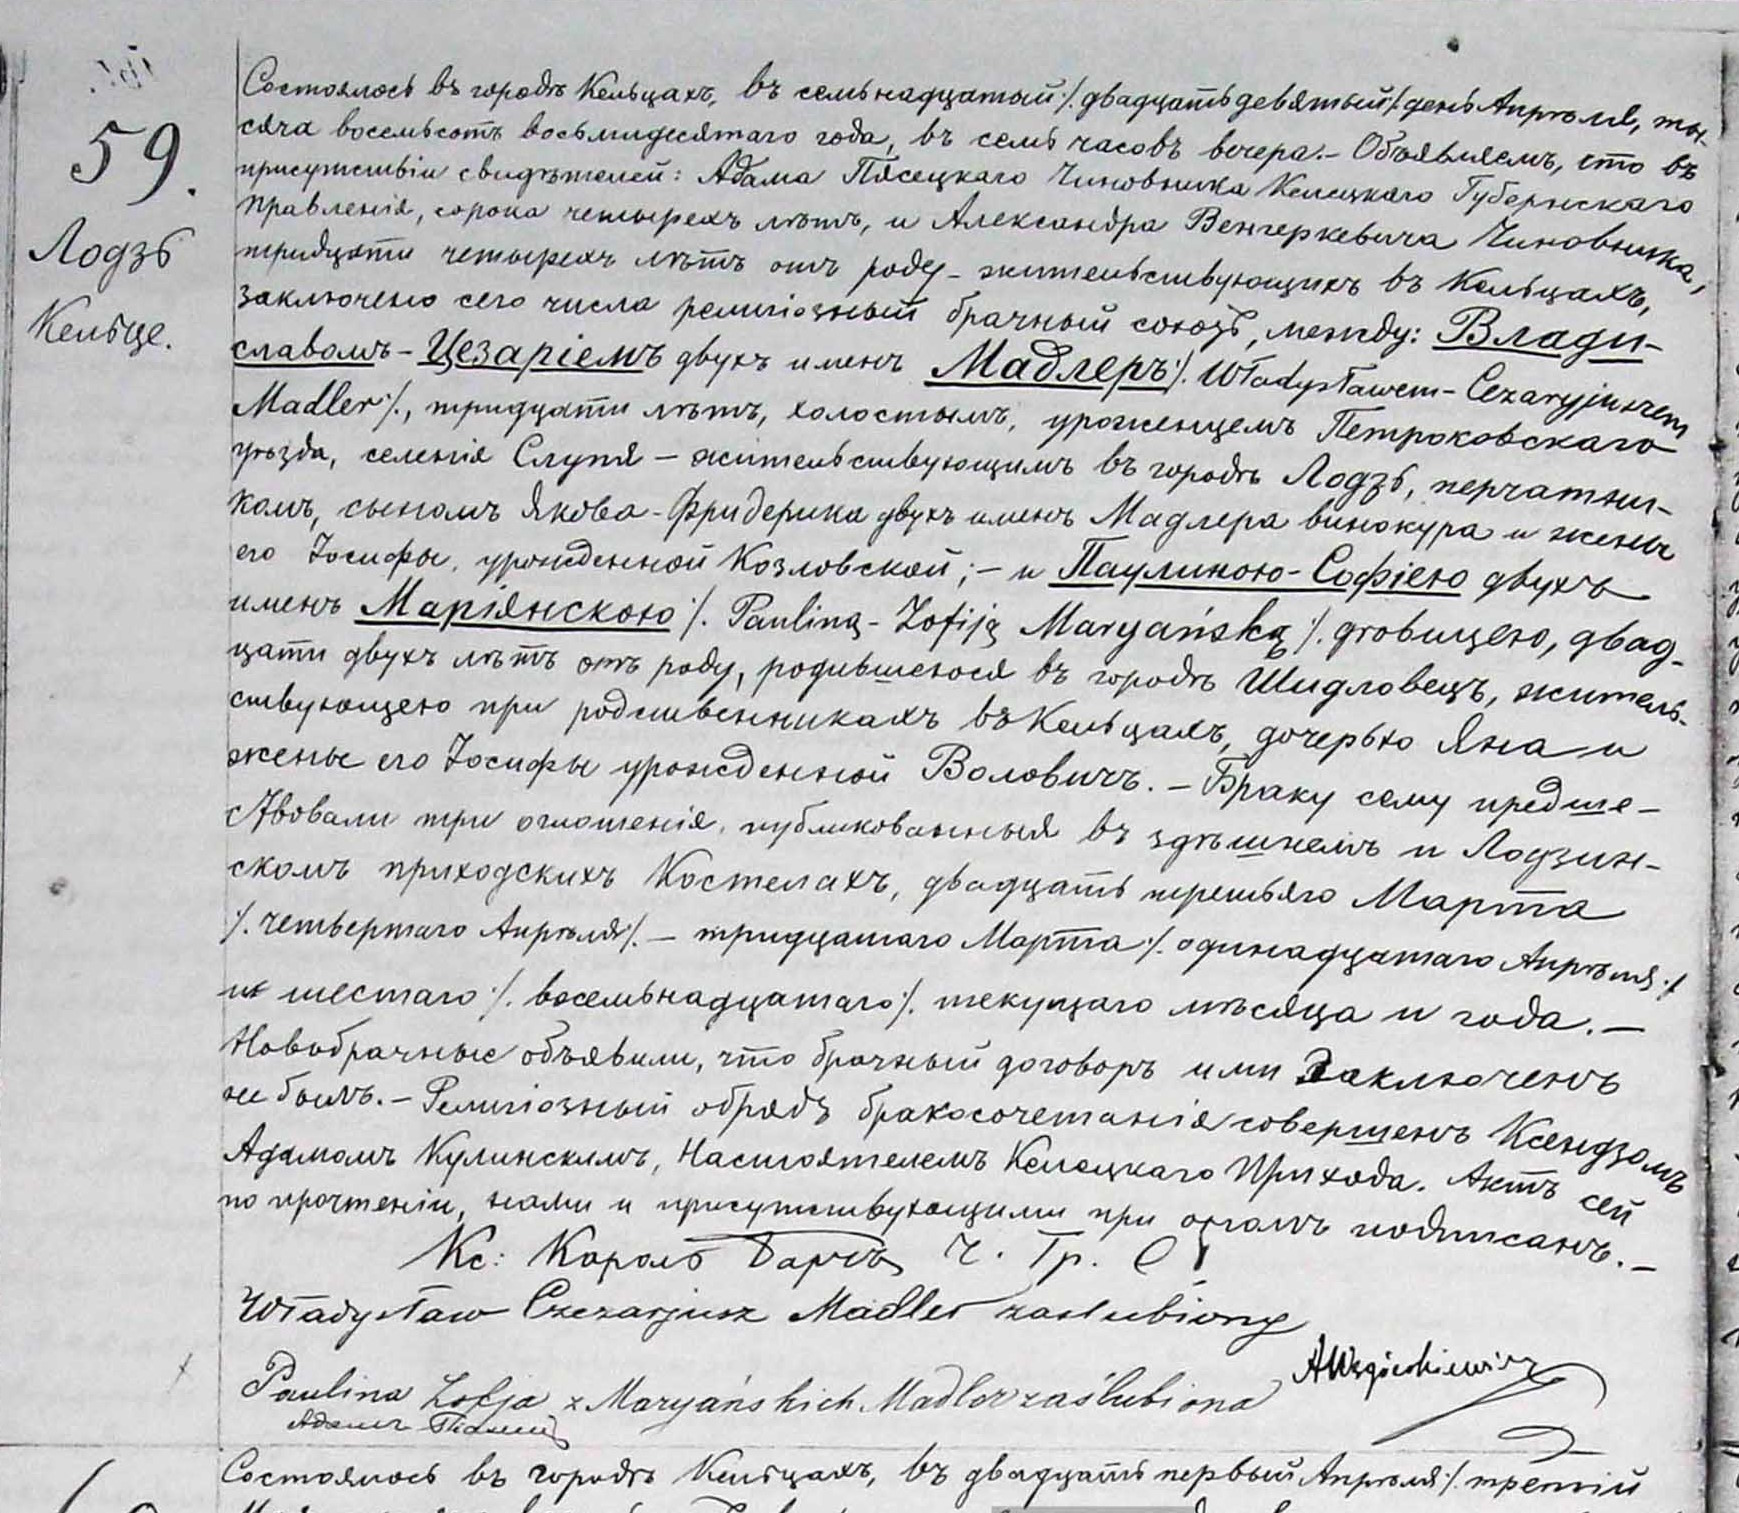 59.
Лодзь
Кельце.
Состоялось въ городѣ Кельцахъ, въ семьнадцатый /. двадцать девятый /. день Апрѣля, ты-
сяча восемьсотъ восьмидесятаго года, въ семь часовъ вечера. – Объявляемъ, что въ
присутствіи свидѣтелей: Адама Пясецкаго Чиновника Келецкаго Губернскаго
Правленія, сорока четырехъ лѣтъ, и Александра Венгеркевича Чиновника,
тридцати четырехъ лѣтъ отъ роду – жительствующихъ въ Кельцахъ,
заключено сего числа религіозный брачный союзъ, между: Влади-
славомъ – Цезаріемъ двухъ именъ Мадлеръ /. Władysławem – Cezaryjuszem
Madler /., тридцати лѣтъ, холостымъ, уроженцемъ Петроковскаго
уѣзда, селенія Слупя – жительствующимъ въ городѣ Лодзь, перчатни-
комъ, сыномъ Якова – Фридерика двухъ именъ Мадлера винокура и жены
его Іосифы, урожденной Козловской; – и Паулиною – Софіею двухъ
именъ Маріянскою /. Pauliną – Zofiją Maryańską /. дѣвицею, двад-
цати двухъ лѣтъ отъ роду, родившеюся въ городѣ Шидловецъ, житель-
ствующею при родственникахъ въ Кельцахъ, дочерью Яна и
жены его Іосифы урожденной Воловичъ. – Браку сему предше-
ствовали три оглошенія, публикованныя въ здѣшнемъ и Лодзин-
скомъ приходскихъ Костелахъ, двадцать третьяго Марта
/. четвертаго Апрѣля /. – тридцатаго Марта /. одинадцатаго Апрѣля ./
и шестаго /. восемьнадцатаго /. текущаго мѣсяца и года. –
Новобрачные объявили, что брачный договоръ ими Заключенъ
не былъ. – Религіозный обрядъ бракосочетанія совершенъ Ксендзомъ
Адамомъ Кулинскимъ, Настоятелемъ Келецкаго Прихода. Актъ сей
по прочтеніи, нами и присутствующими при ономъ подписанъ. –
Кс: Кароль Ч. Гр. С
Władysław Czezarjusz Madler zaslubiony
Paulina Zofja z Maryańskich Madler zaślubiona
Адамъ
Состоялось въ городѣ Кельцахъ, въ двадцать первый Апрѣля /. третій